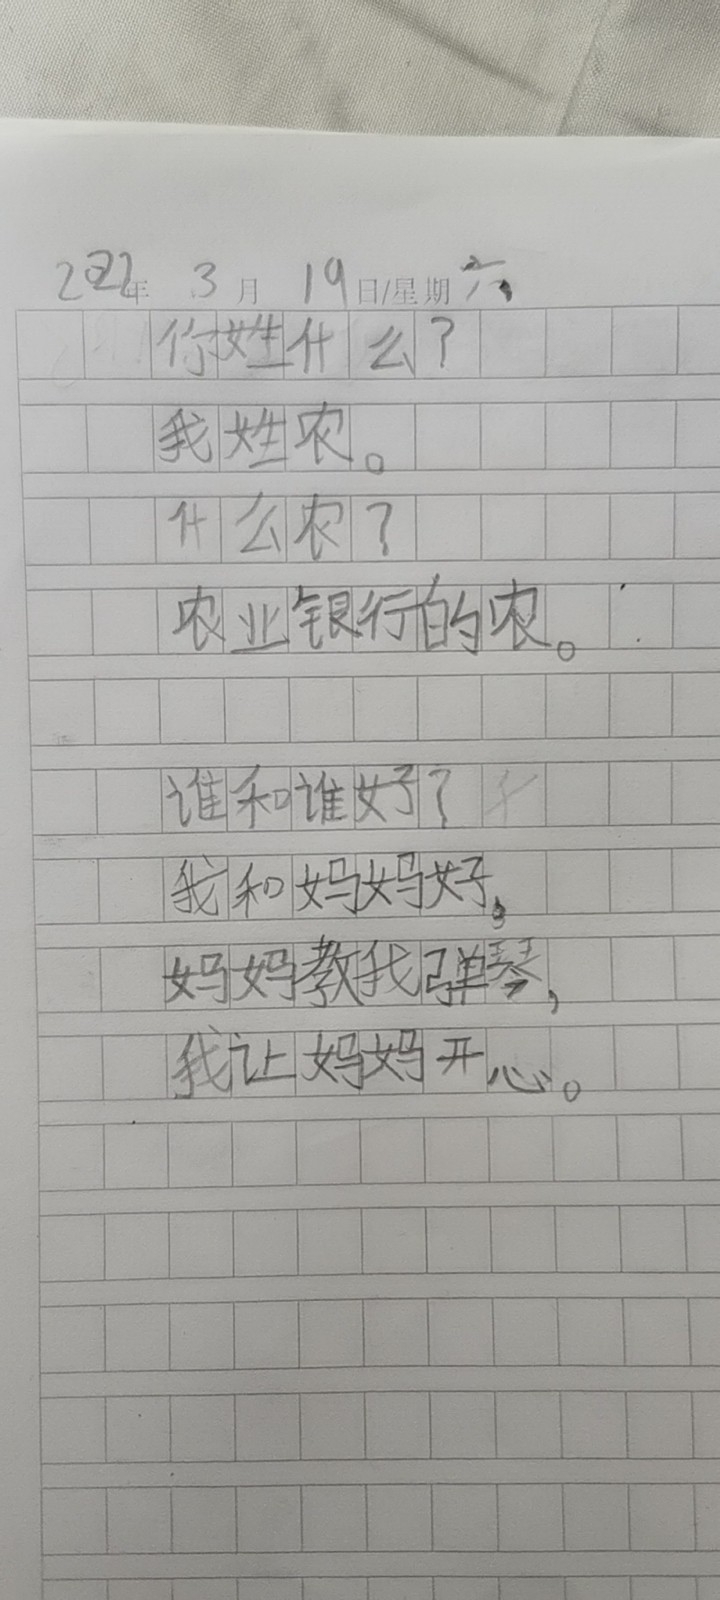 2022年 3月 19日/星期六
你姓什么?
我姓农。
什么农?
农业银行的农。
谁和谁好?
我和妈妈好,
妈妈教我弹琴,
我让妈妈开心。